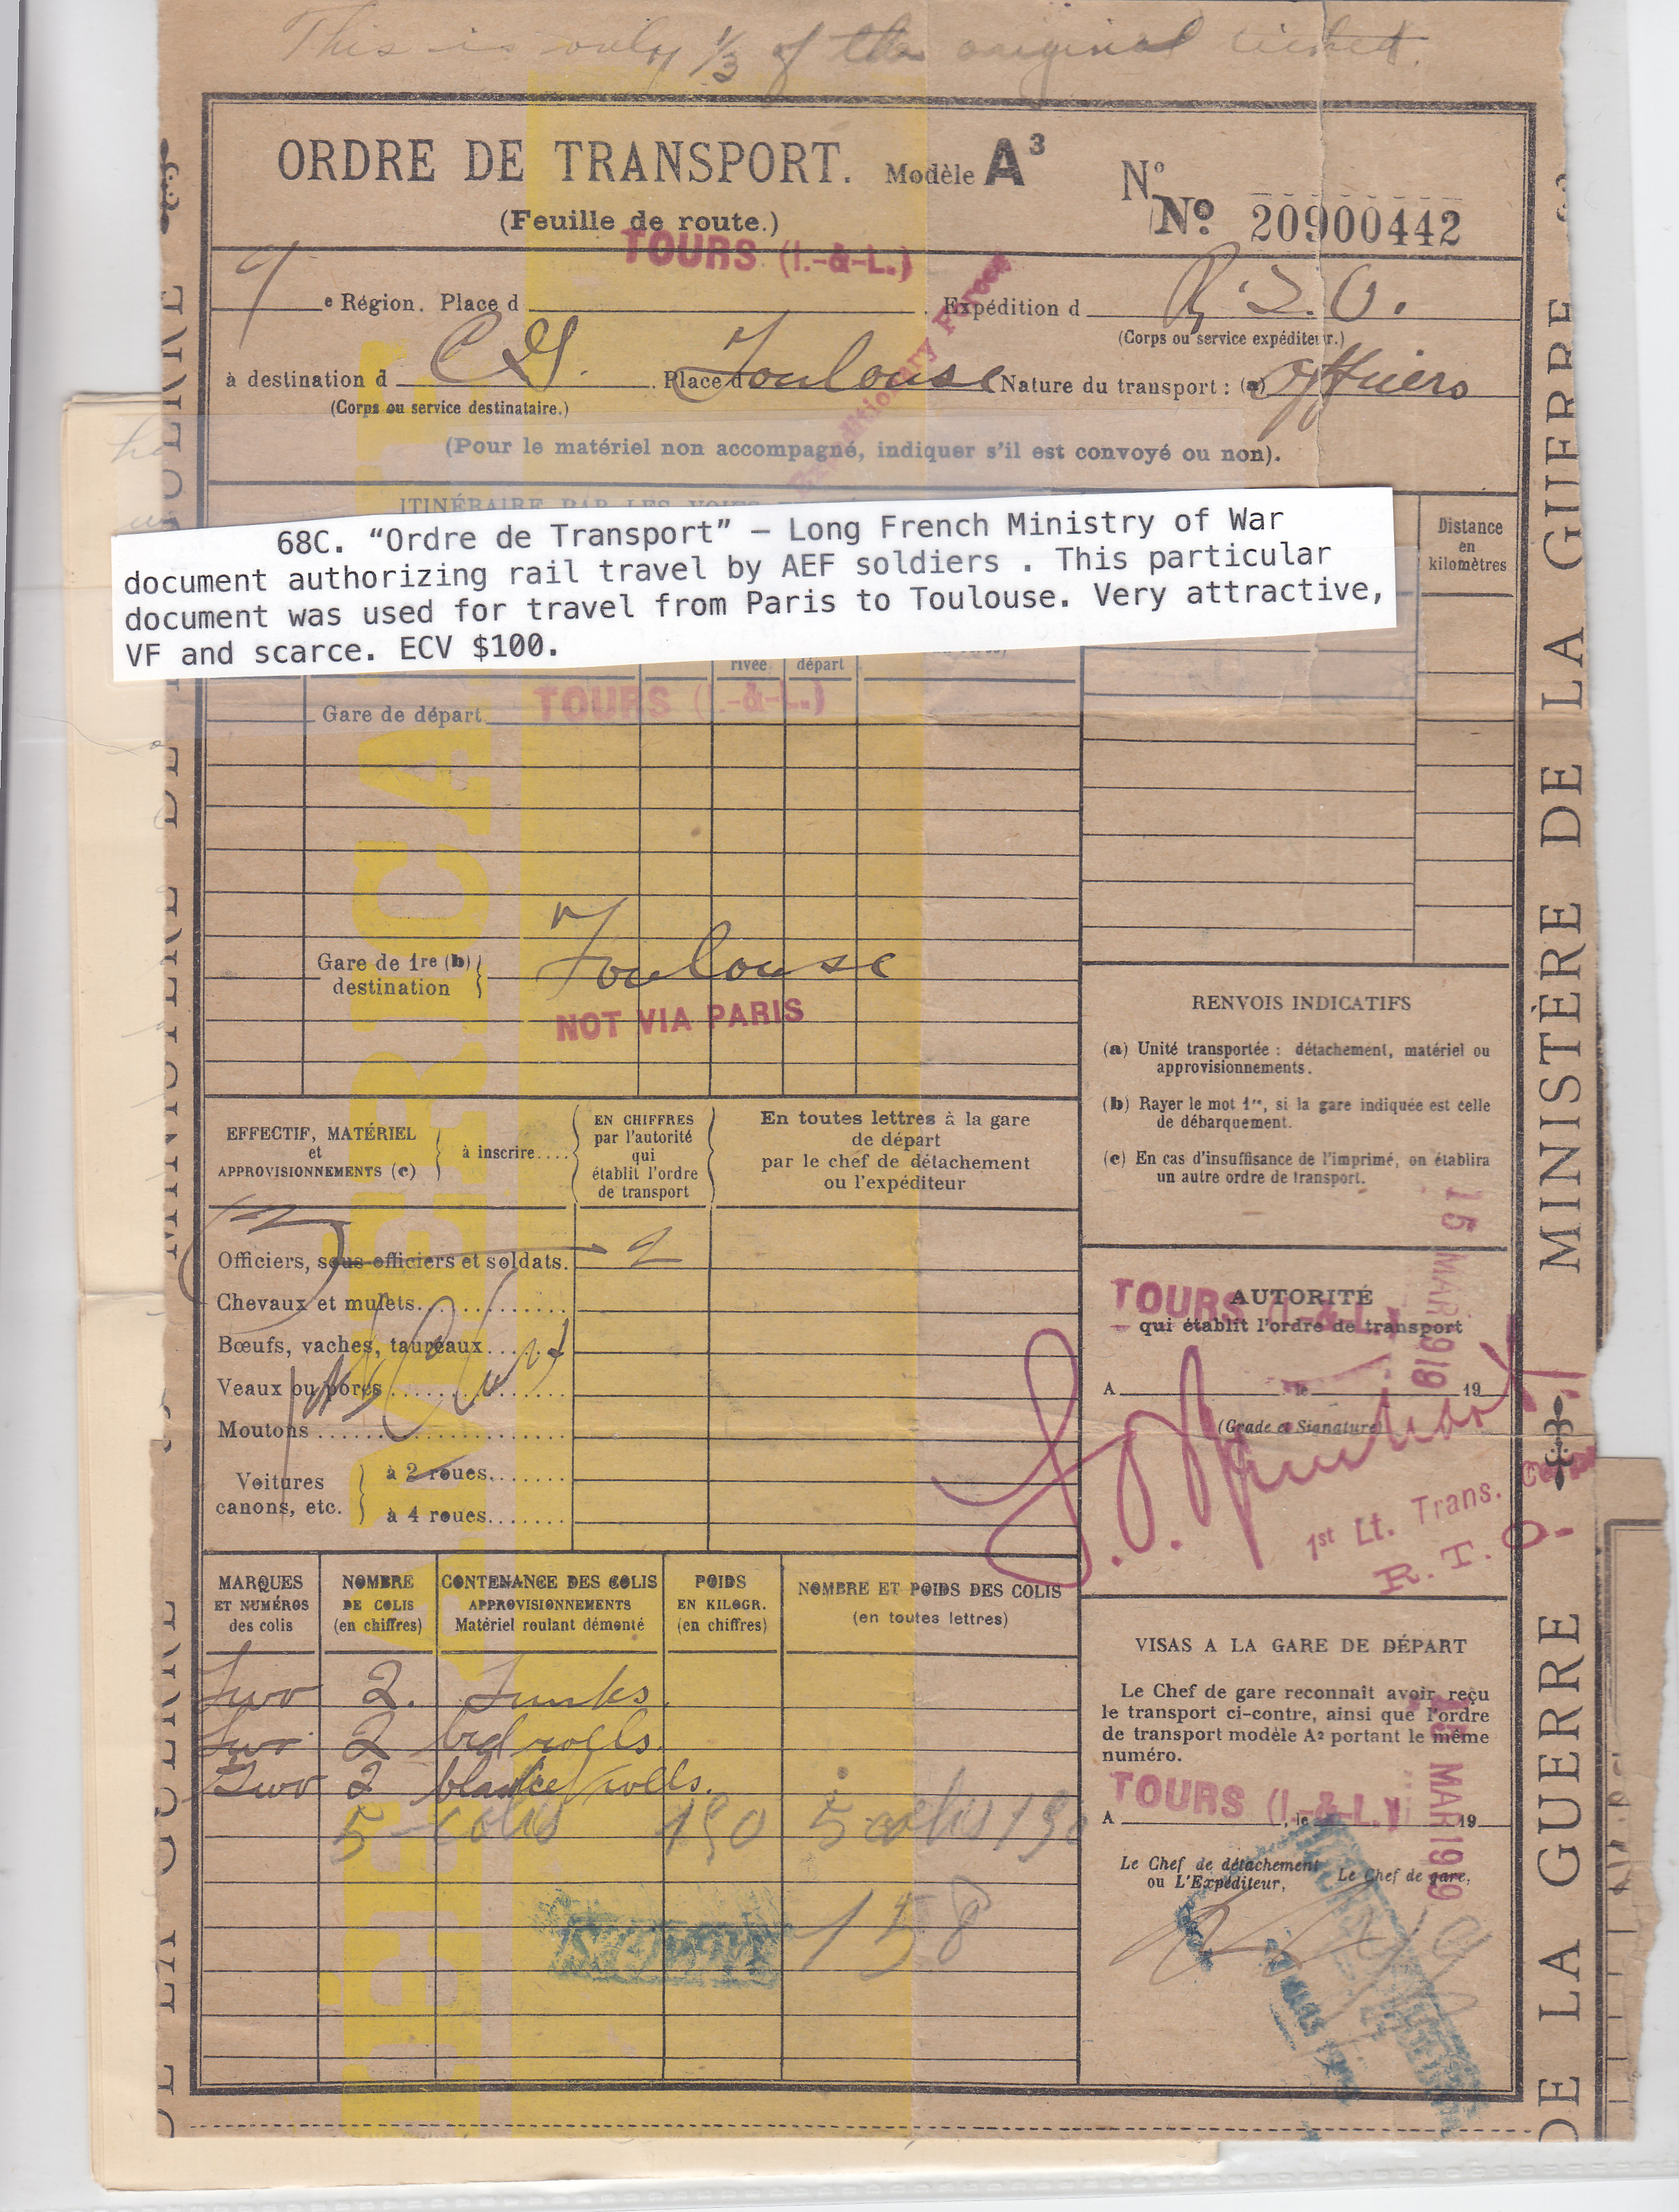 This is only 1/3 of the original ticket.
ORDRE DE TRANSPORT. Modèle A³ N°
(Feuille de route.) No 20900442
TOURS (I.-&-L.)
9 e Région. Place d . Expédition d R.T.O.
(Corps ou service expéditeur.)
Expeditionary Forces
à destination d C.G. . Place d Toulouse Nature du transport : (a) Officers
(Corps ou service destinataire.)
(Pour le matériel non accompagné, indiquer s'il est convoyé ou non).
ITINÉRAIRE PAR LES VOIES
68C. “Ordre de Transport” – Long French Ministry of War
document authorizing rail travel by AEF soldiers . This particular
document was used for travel from Paris to Toulouse. Very attractive,
VF and scarce. ECV $100.
Distance
en
kilomètres
rivée départ
Gare de départ TOURS (I.-&-L.)
Gare de 1re (b)
destination
Toulouse
NOT VIA PARIS
RENVOIS INDICATIFS
(a) Unité transportée : détachement, matériel ou
approvisionnements.
(b) Rayer le mot 1re, si la gare indiquée est celle
de débarquement.
(c) En cas d'insuffisance de l'imprimé, on établira
un autre ordre de transport.
EFFECTIF, MATÉRIEL
et
APPROVISIONNEMENTS (c)
à inscrire....
EN CHIFFRES
par l'autorité
qui
établit l'ordre
de transport
En toutes lettres à la gare
de départ
par le chef de détachement
ou l'expéditeur
Officiers, sous-officiers et soldats. 2
Chevaux et mulets
Bœufs, vaches, taureaux
Veaux ou porcs
Moutons
Voitures
canons, etc.
à 2 roues
à 4 roues
15 MAR 1919
TOURS (I.-&-L.)
AUTORITÉ
qui établit l'ordre de transport
A , le 19
(Grade et Signature)
1st Lt. Trans. Corps
R. T. O.
MARQUES
ET NUMÉROS
des colis
NOMBRE
DE COLIS
(en chiffres)
CONTENANCE DES COLIS
APPROVISIONNEMENTS
Matériel roulant démonté
POIDS
EN KILOGR.
(en chiffres)
NOMBRE ET POIDS DES COLIS
(en toutes lettres)
Two 2. Trunks.
Two 2 bed rolls.
Two 2 blanket rolls.
5 colis 190 5 colis 190
158
VISAS A LA GARE DE DÉPART
Le Chef de gare reconnaît avoir reçu
le transport ci-contre, ainsi que l'ordre
de transport modèle A2 portant le même
numéro.
15 MAR 1919
TOURS (I.-&-L.)
A , le 19
Le Chef de détachement
ou L'Expéditeur,
Le Chef de gare,
AMERICA
MINISTÈRE DE LA GUERRE
DE LA GUERRE